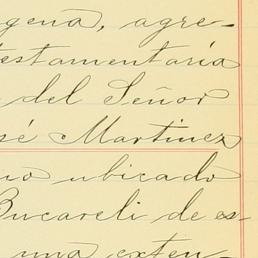 gena, agre-
testamentaria
del Señor
sé Martinez
no ubicado
Bucareli de es-
una exten-